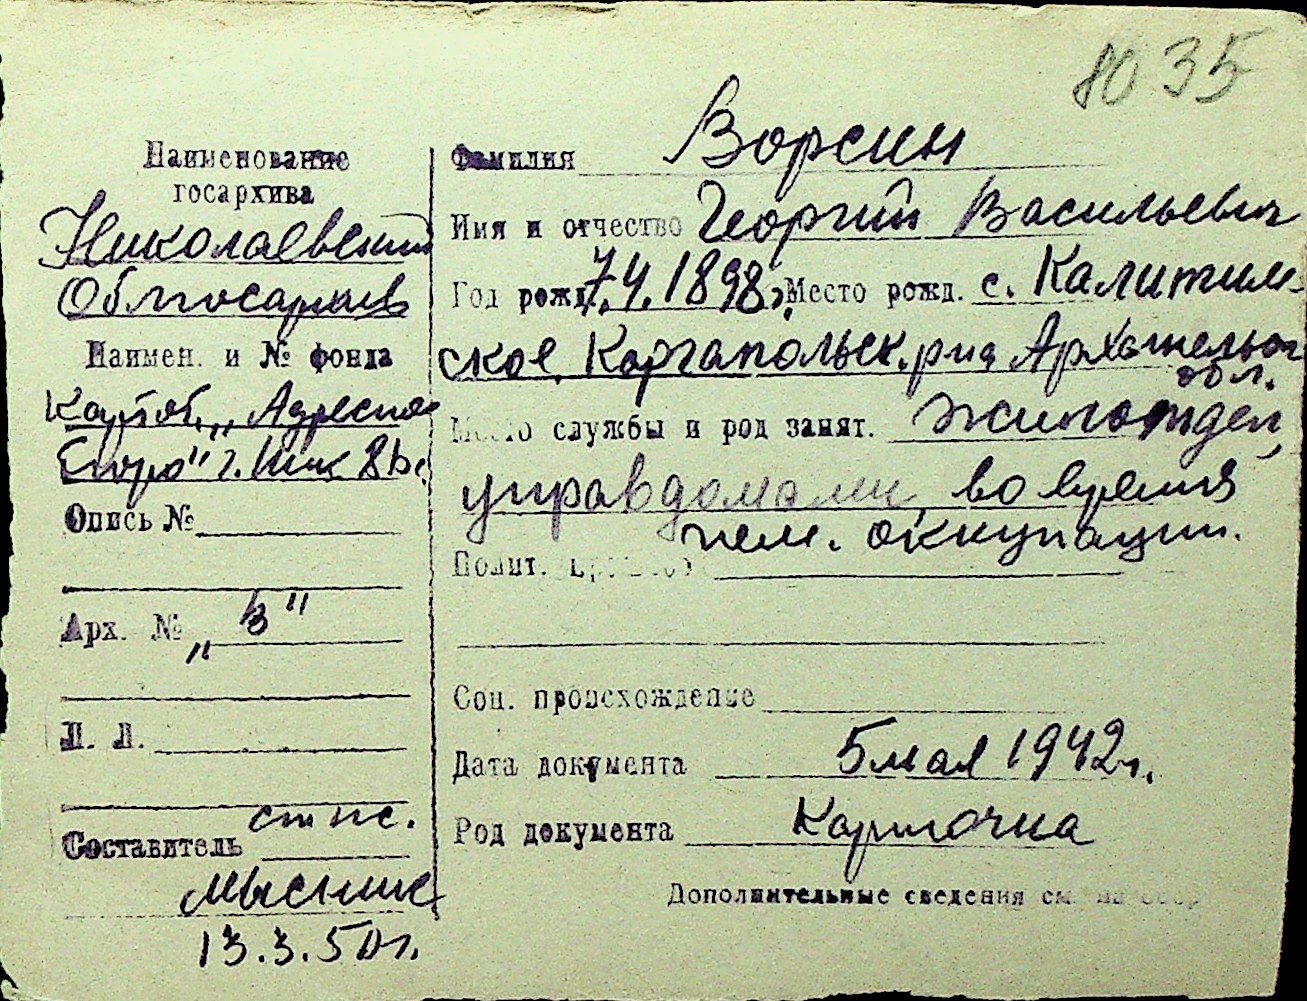 80 35
Наименование
госархива
Николаевский
Облгосархив
Наимен. и № фонда
Картот. „Адресное
бюро" г. Ник
Опись №
Арх. № „В"
Л. Л.
Составитель ст. нс.
13.3.50 г.
Фамилия Ворсин
Имя и отчество Георгий Васильевич
Год рожд. 7.4.1898 г. Место рожд. с. Калитин-
ское, Каргапольск. р-на Архангельск
обл.
Место службы и род занят. Жилотдел,
управдомами, во время
нем. оккупации.
Полит.
Соц. происхождение
Дата документа 5 мая 1942 г.
Род документа Карточка
Дополнительные сведения см. на обор